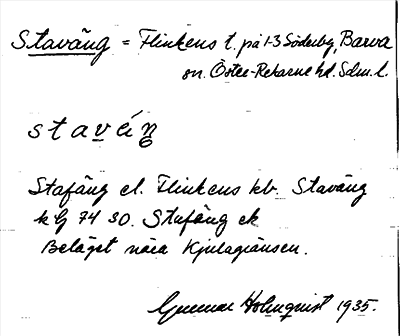 Staväng = Flinkens t. på 1-3 Söderby, Barva
sn. Öster-Rekarne hd. Sdm. l.
staväŋ
Stafäng el. Flinkens kb. Staväng
k bl 74 30. Stafäng ek
Beläget nära Kjulagränsen.
Gunnar Holmquist 1935.